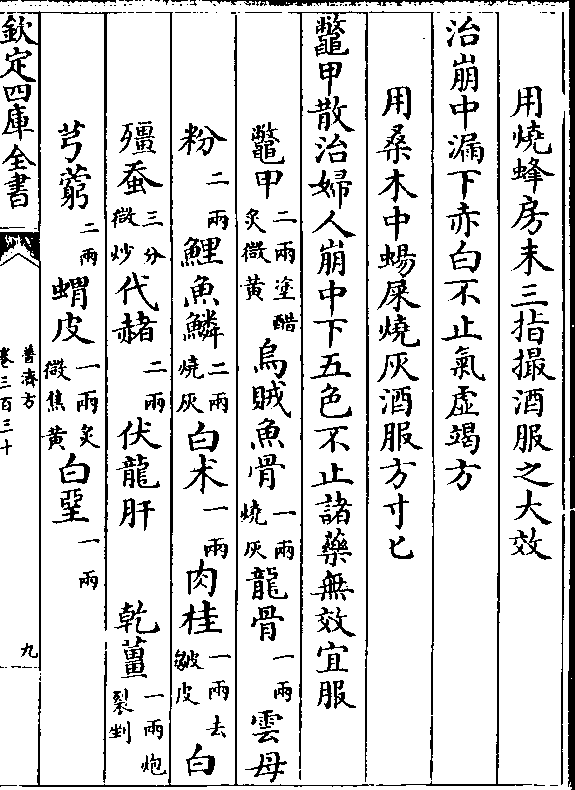 用燒蜂房末三指撮酒服之大效
治崩中漏下赤白不止氣虛竭方
用桑木中蝎屎燒灰酒服方寸匕
鼈甲散治婦人崩中下五色不止諸藥無效宜服
鼈甲二兩塗醋炙微黃烏賊魚骨一兩燒灰龍骨一兩雲母
粉二兩鯉魚鱗二兩燒灰白术一兩肉桂一兩去皴皮白
殭蚕三分微炒代赭二兩伏龍肝 乾薑一兩炮裂剉
芎藭二兩蝟皮一兩炙微焦黃白堊一兩
欽定四庫全書
普濟方
卷三百三十
九